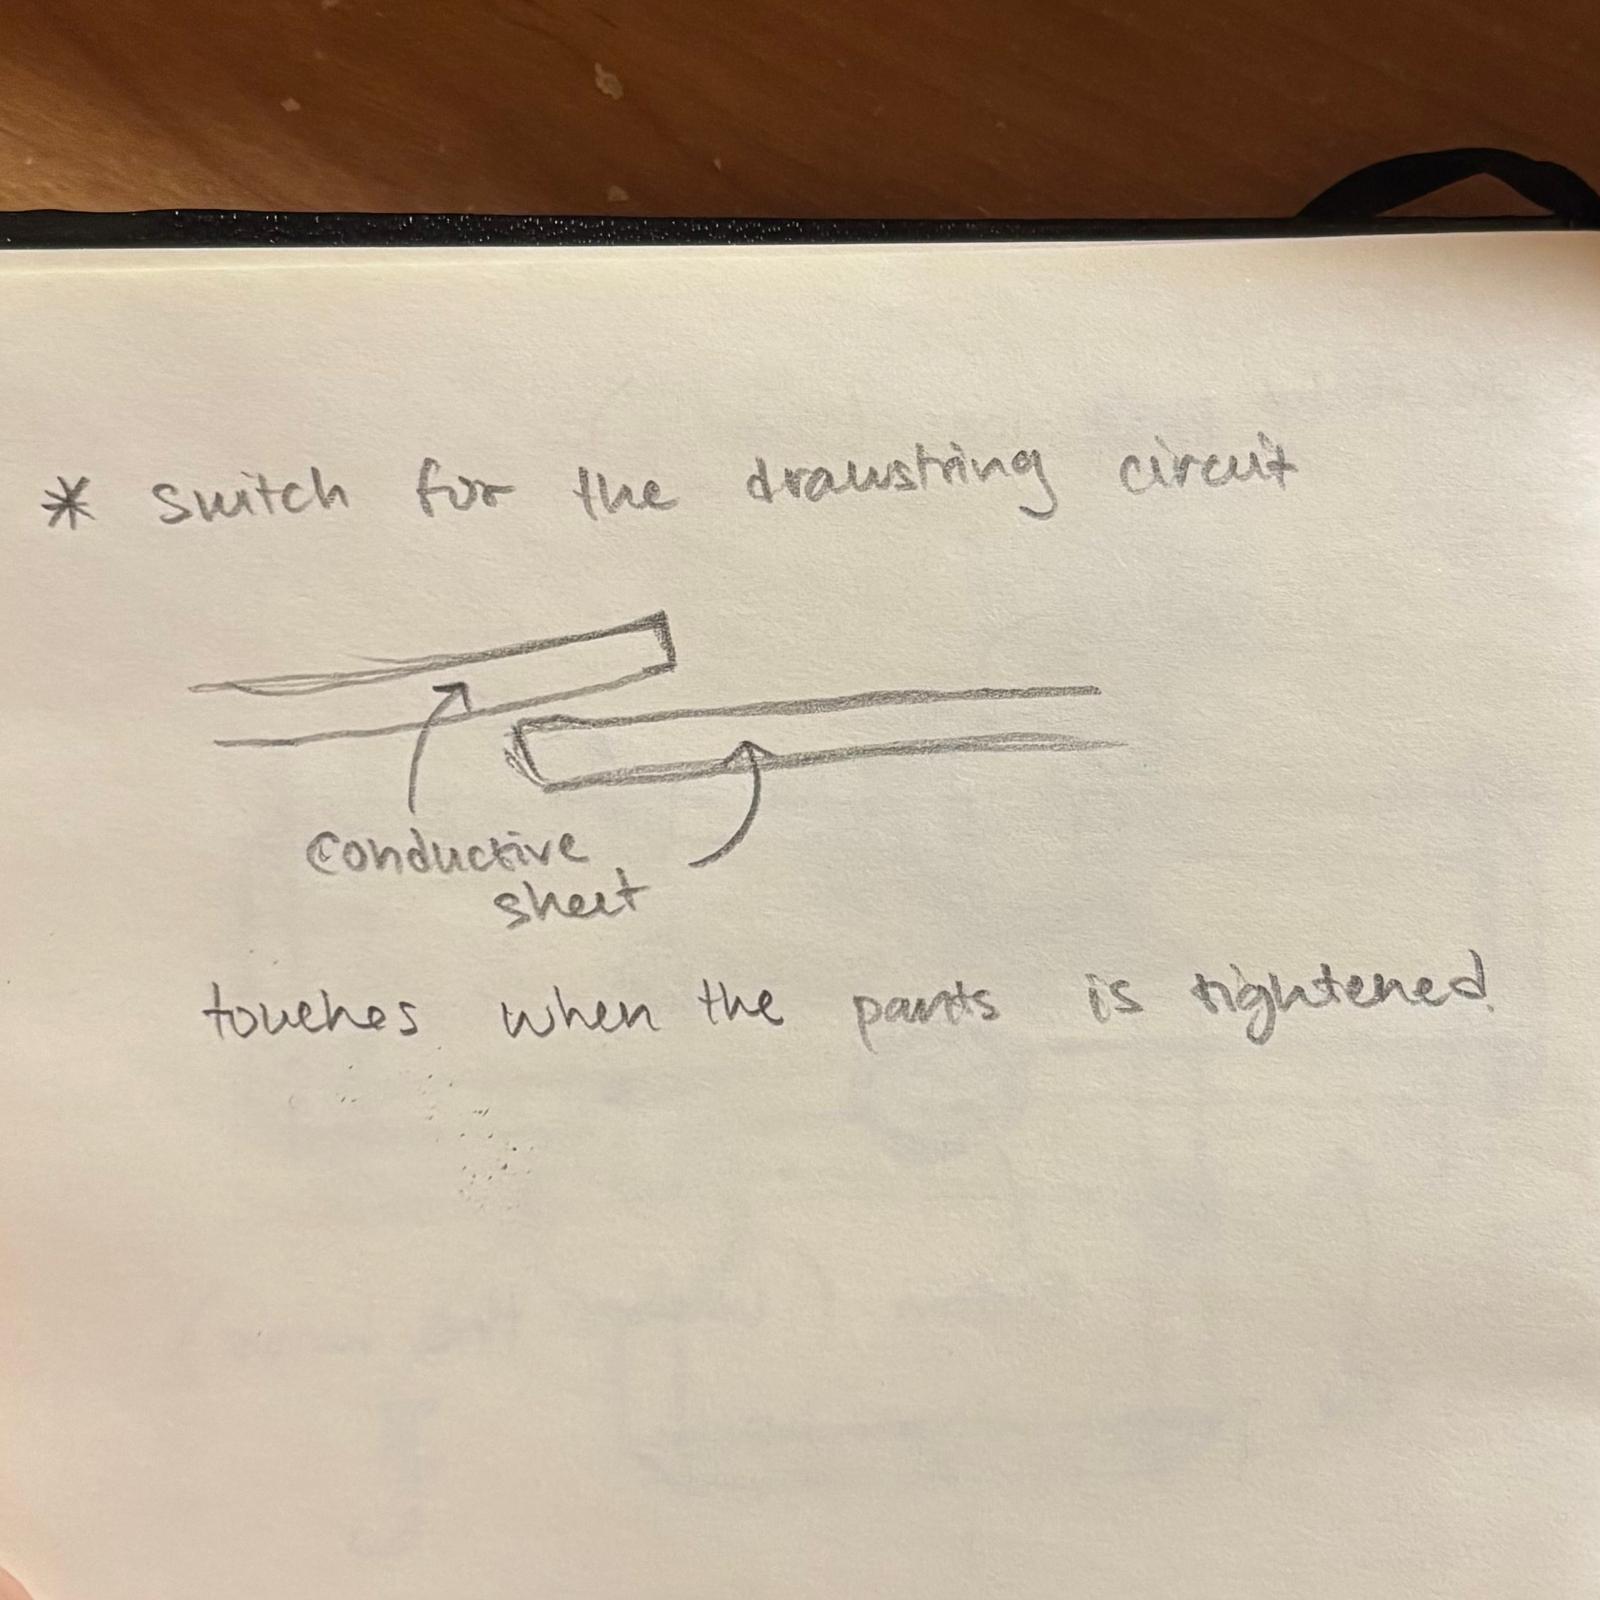 * switch for the drawstring circuit
conductive
sheet
touches when the pants is tightened.